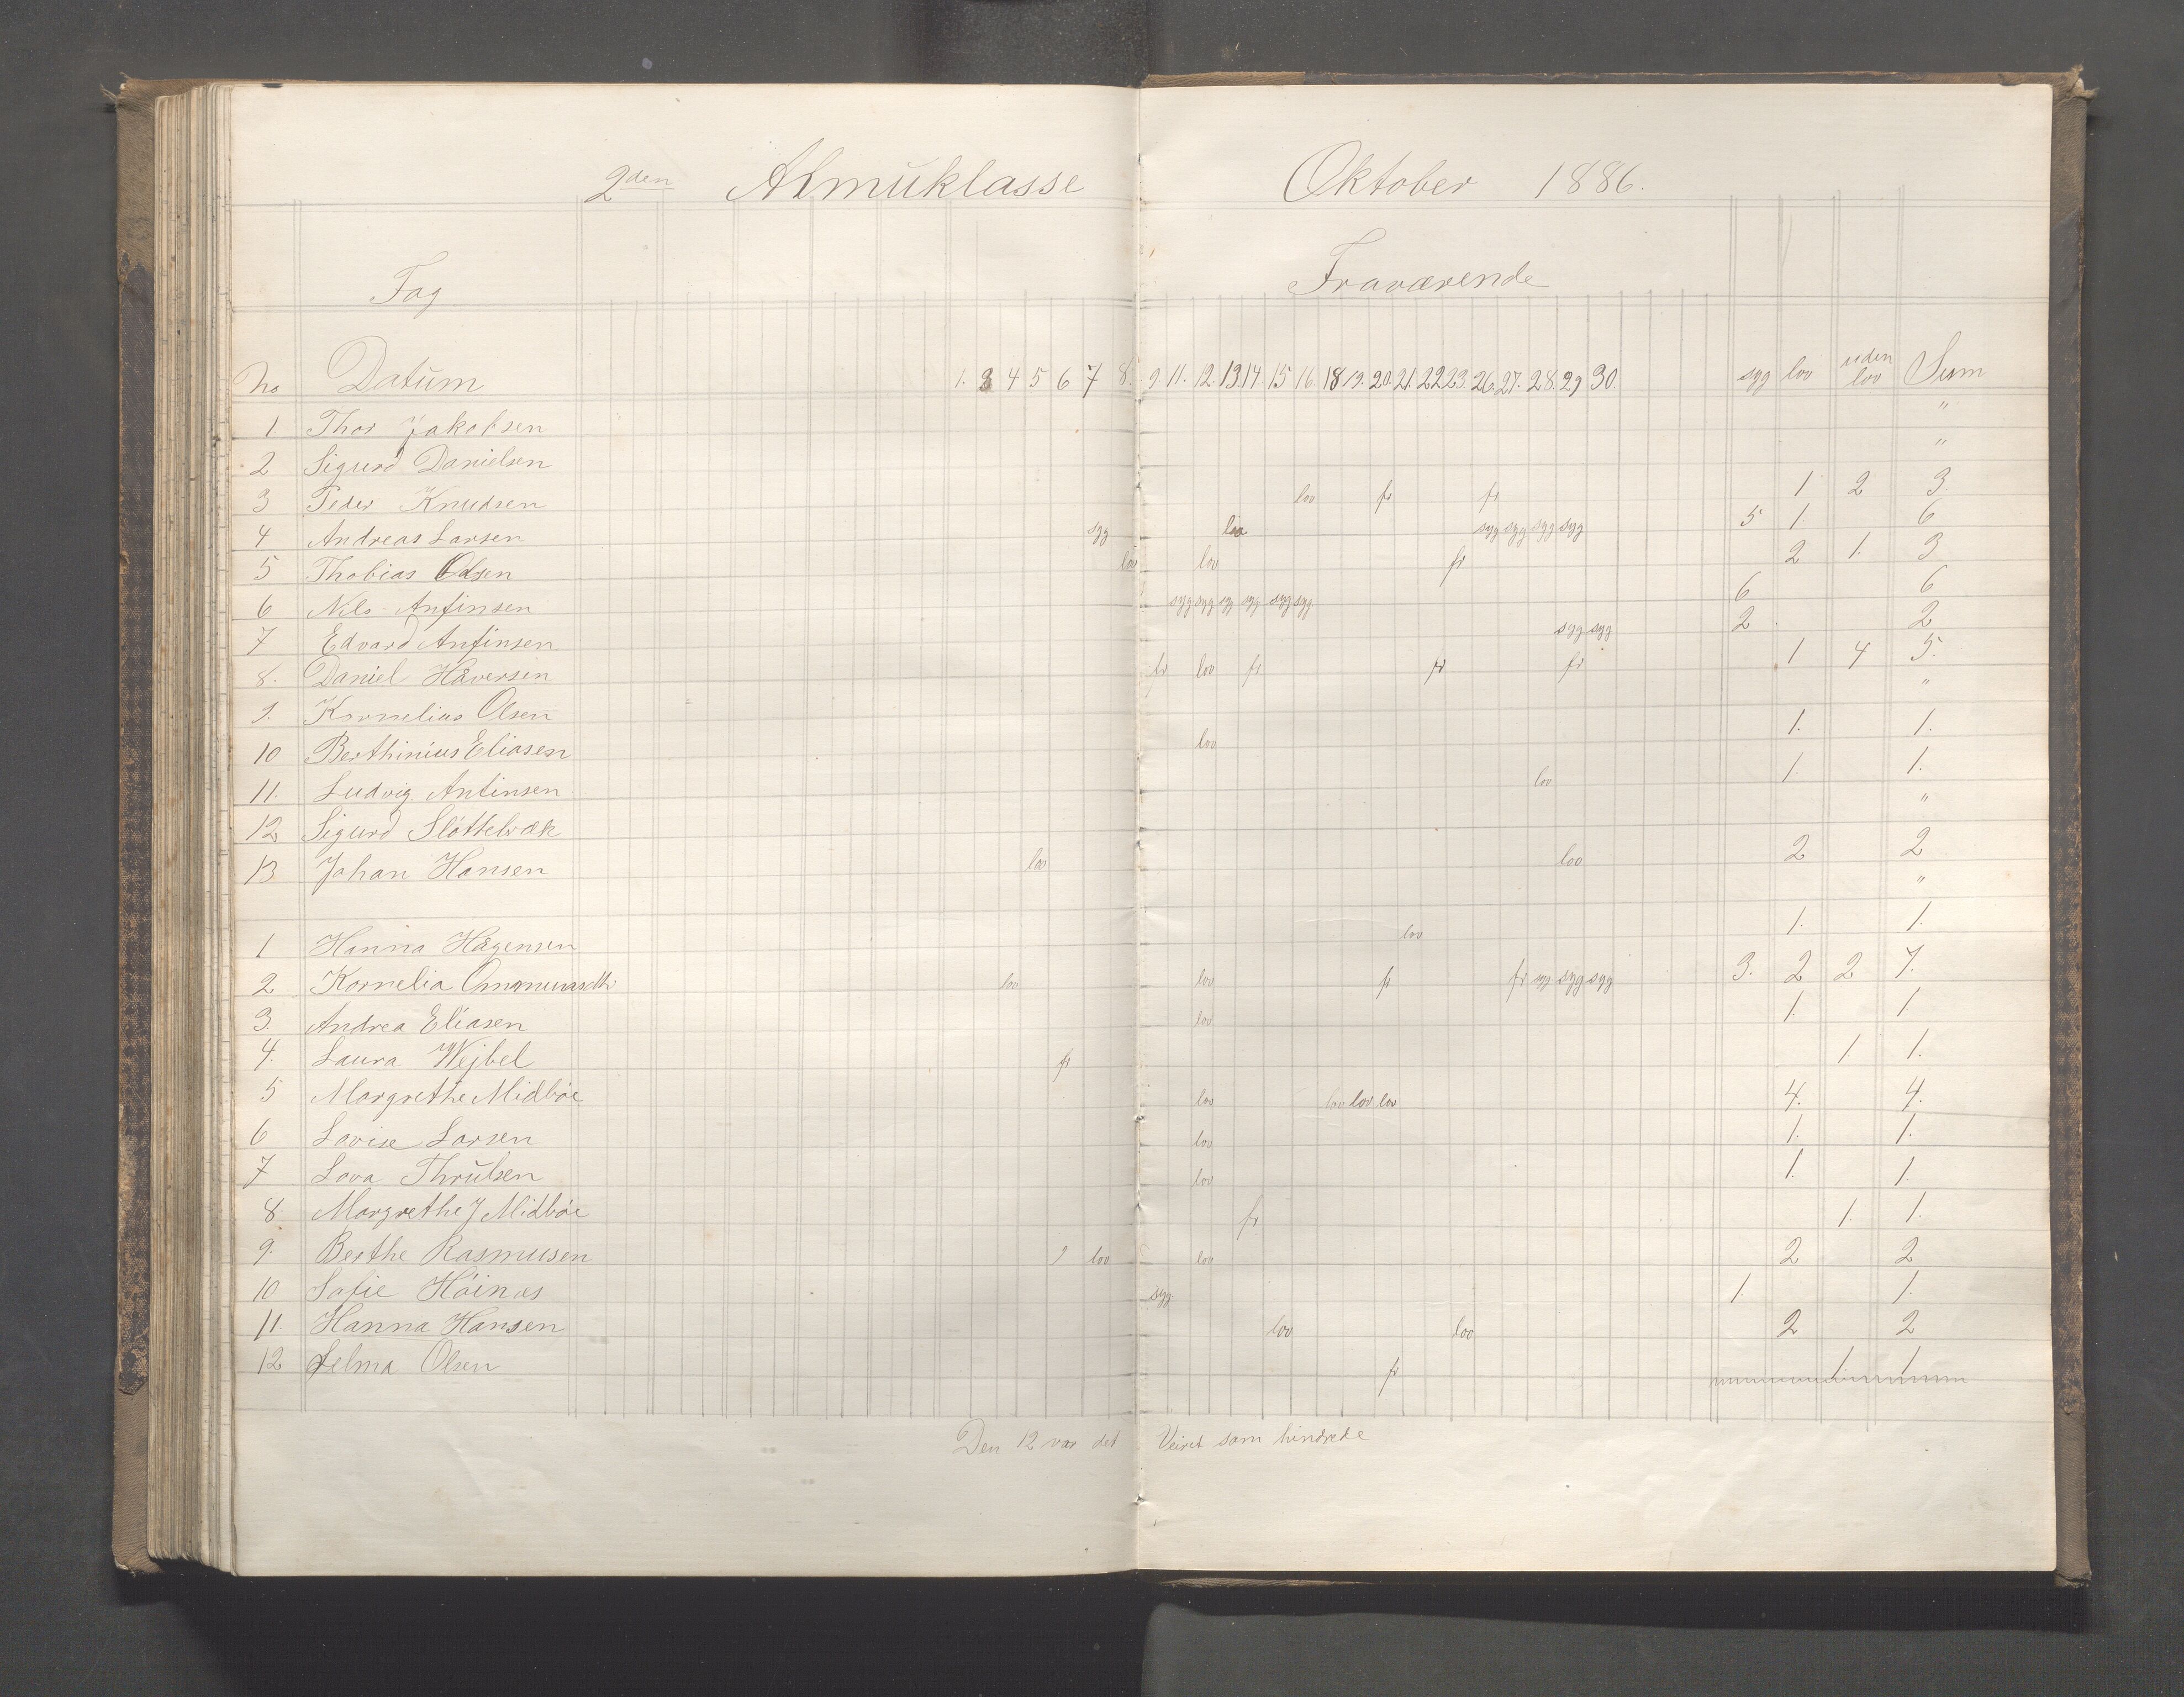 2den Almuklasse Oktober 1886.
Fag Fraværende
No Datum 1. 3 4 5 6 7 8. 9 11. 12. 13. 14. 15 16. 18 19. 20. 21. 22 23. 26. 27. 28. 29 30. syg lov uden lov Sum
1 Thor Jakobsen "
2 Sigurd Danielsen "
3 Peder Knudsen lov fr fr 1 2 3
4 Andreas Larsen syg lov syg syg syg syg 5 1. 6
5 Thobias Olsen lov lov fr 2 1. 3
6 Nils Anfinsen syg syg syg syg syg syg 6 6
7 Edvard Anfinsen syg syg 2 2
8. Daniel Hæversen fr lov fr fr fr 1 4 5.
9. Kornelius Olsen "
10 Berthinius Eliasen lov 1. 1.
11. Ludvig Anfinsen lov 1. 1.
12 Sigurd Slöttebræk "
13 Johan Hansen lov lov 2 2
"
1 Hanna Hagensen lov 1. 1.
2 Kornelia lov lov fr fr syg syg syg 3. 2 2 7.
3. Andrea Eliasen lov 1. 1
4. Laura Wejbel fr 1. 1.
5 Margrethe Midböe lov lov lov lov 4. 4.
6 Lovise Larsen lov 1. 1.
7 Lova Thrulsen lov 1. 1.
8. Margrethe J Midböe fr 1. 1.
9. Berthe Rasmusen lov lov 2 2
10 Sofie Höines syg. 1. 1.
11. Hanna Hansen lov lov 2 2
12 Selma Olsen fr 1. 1
Den 12 var det Veiret som hindrede